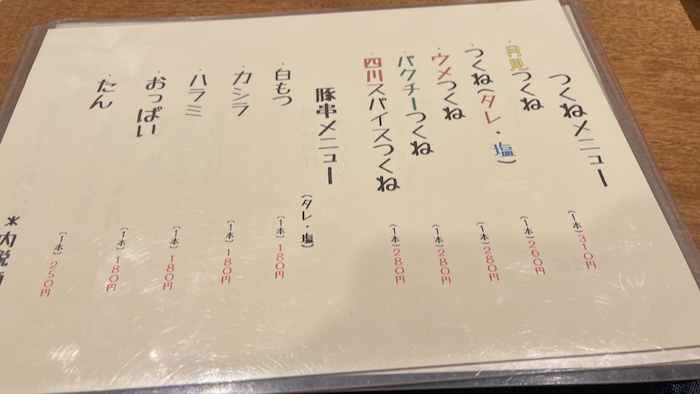 つくねメニュー
・月見つくね (1本)310円
・つくね(タレ・塩) (1本)260円
・ウメつくね (1本)280円
・パクチーつくね (1本)280円
・四川スパイスつくね (1本)280円
豚串メニュー (タレ・塩)
・白もつ (1本)180円
・カシラ (1本)180円
・ハラミ (1本)180円
・おっぱい (1本)180円
・たん (1本)250円
＊内税